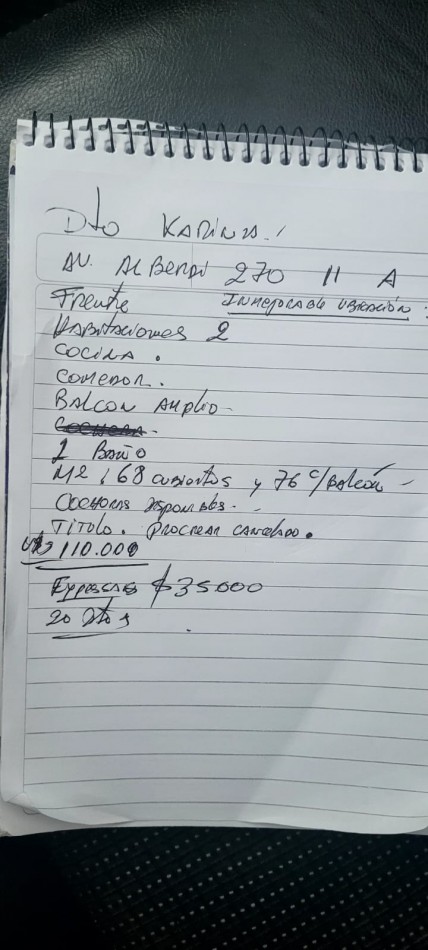 Dto KARINA!
AV. ALBERDI 270 11 A
FRENTE INMEJORABLE UBICACIÓN
HABITACIONES 2
COCINA.
COMEDOR.
BALCON AMPLIO-
COCHERA-
1 BAÑO
M2, 68 CUBIERTOS y 76 C/BALCÓN-
COCHERAS DISPONIBLES.-
TITULO. PROCREAR CANCELADO.
U$S 110.000
EXPENSAS $35000
20 Dtos